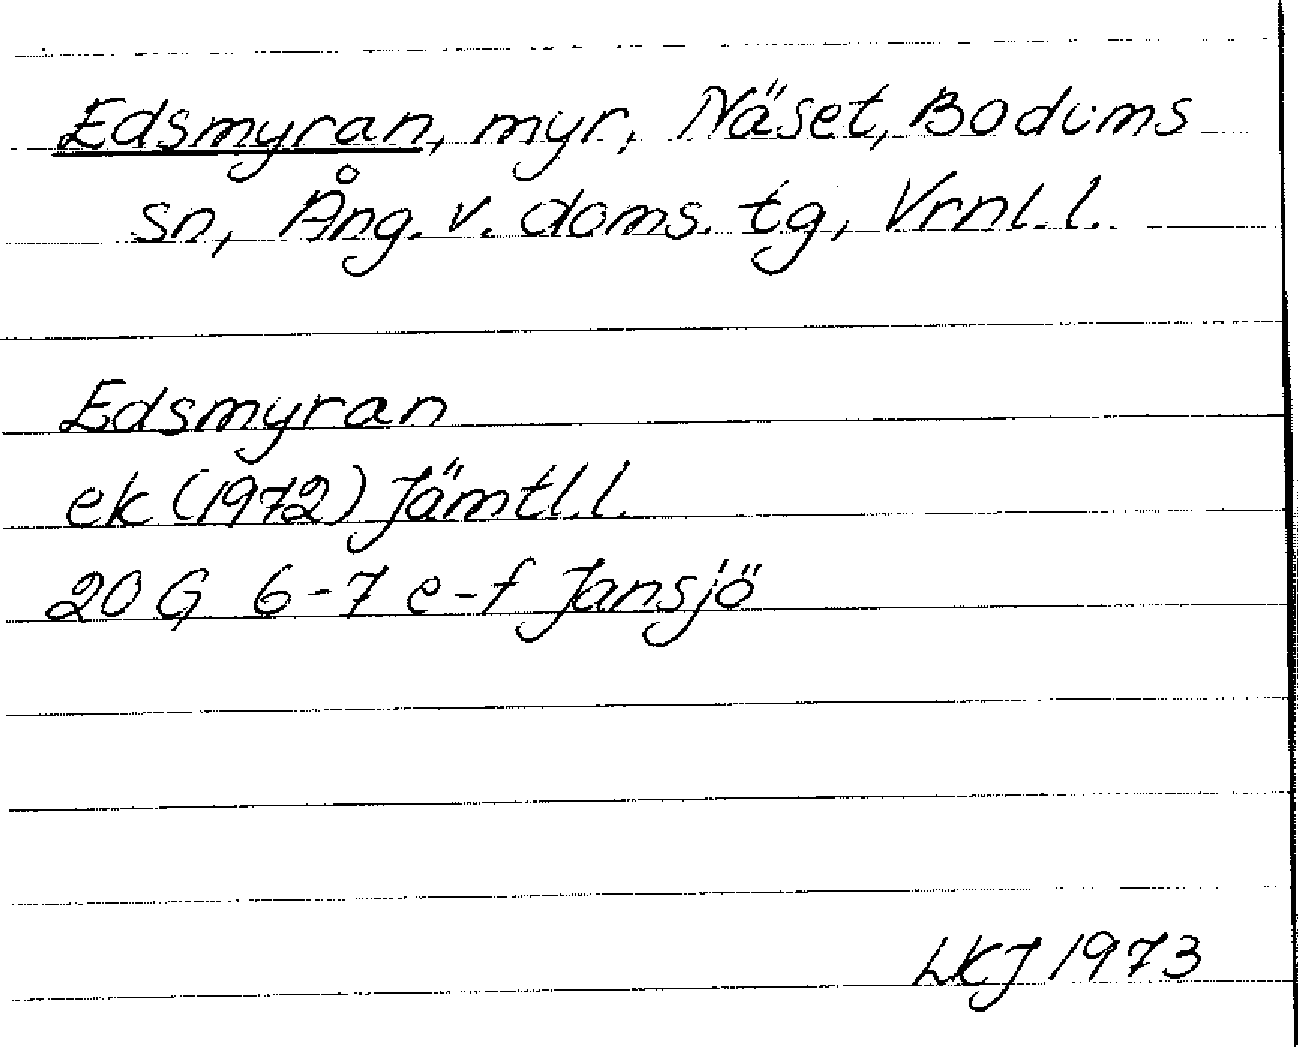 Edsmyran, myr, Näset, Bodums
sn, Ång. v. doms. tg, Vrnl. l.
Edsmyran
ek (1972) Jämtl. l.
20 G 6-7 e-f Jansjö
LKJ 1973